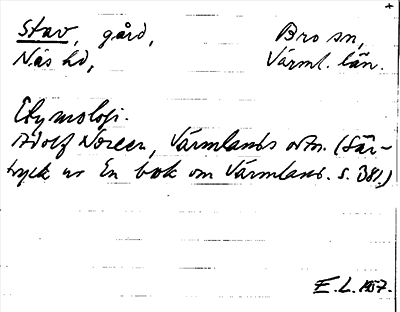 Stav, gård, Bro sn,
Näs hd, Värml. län.
Etymologi.
Adolf Noreen, Värmlands ortn. (Sär-
tryck ur En bok om Värmland. s. 381)
E. L. 1957.